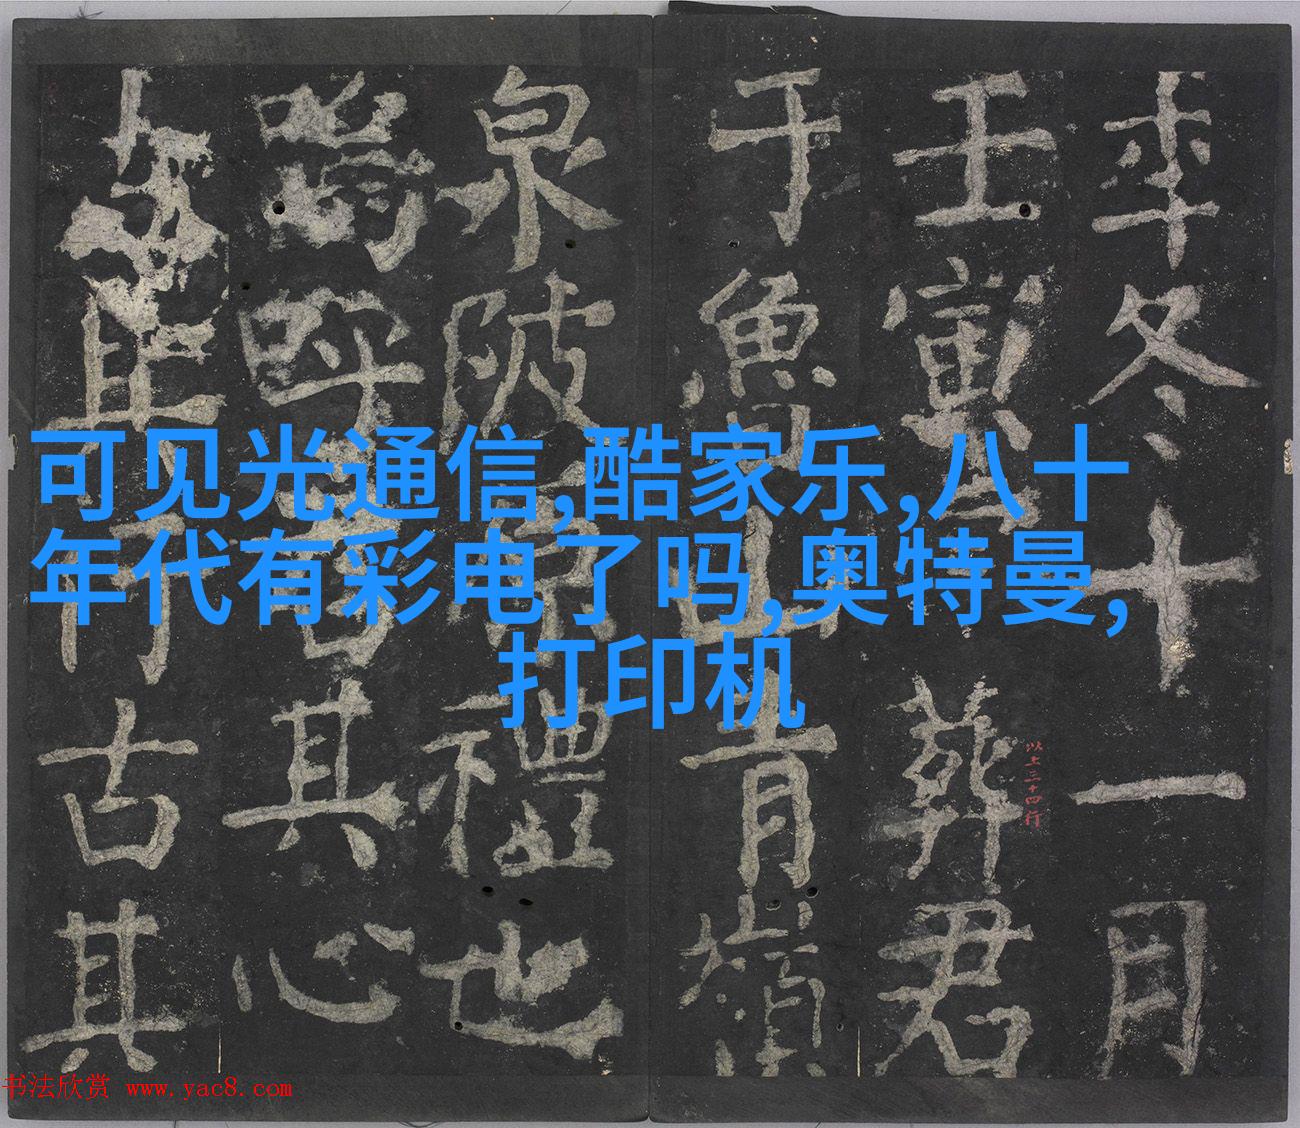 年冬十一月
壬寅葬君
于鲁山青岭
泉陂原禮也
嗚呼君其心
古其
以上三十四行
可见光通信,酷家乐,八十
年代有彩电了吗,奥特曼,
打印机
书法欣赏 www.yac8.com